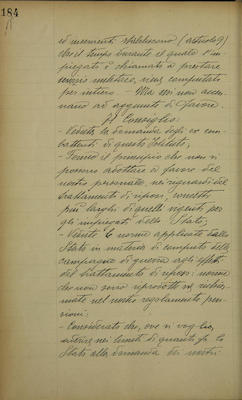 184
ed incrementi stabiliscono (articolo 9)
che il tempo durante il quale l'im-
piegato è chiamato a prestare
servizio militare, viene computato
per intero. - Ma essi non accen-
nano ad aggiunte di favore.
Il Consiglio:
- Veduta la domanda degli ex com-
battenti di questo Istituto;
- Tenuto il principio che non si
possono adottare a favore del
nostro personale, nei riguardi del
trattamento di riposo, concetti
più larghi di quelli vigenti per
gli impiegati dello Stato;
- Vedute le norme applicate dallo
Stato in materia di computo delle
campagne di guerra agli effetti
del trattamento di riposo: norme
che non sono riprodotte nè richia-
mate nel nostro regolamento pen-
sioni:
- Considerato che, ove si voglia,
entro i limiti di quanto fa lo
Stato alla domanda dei nostri